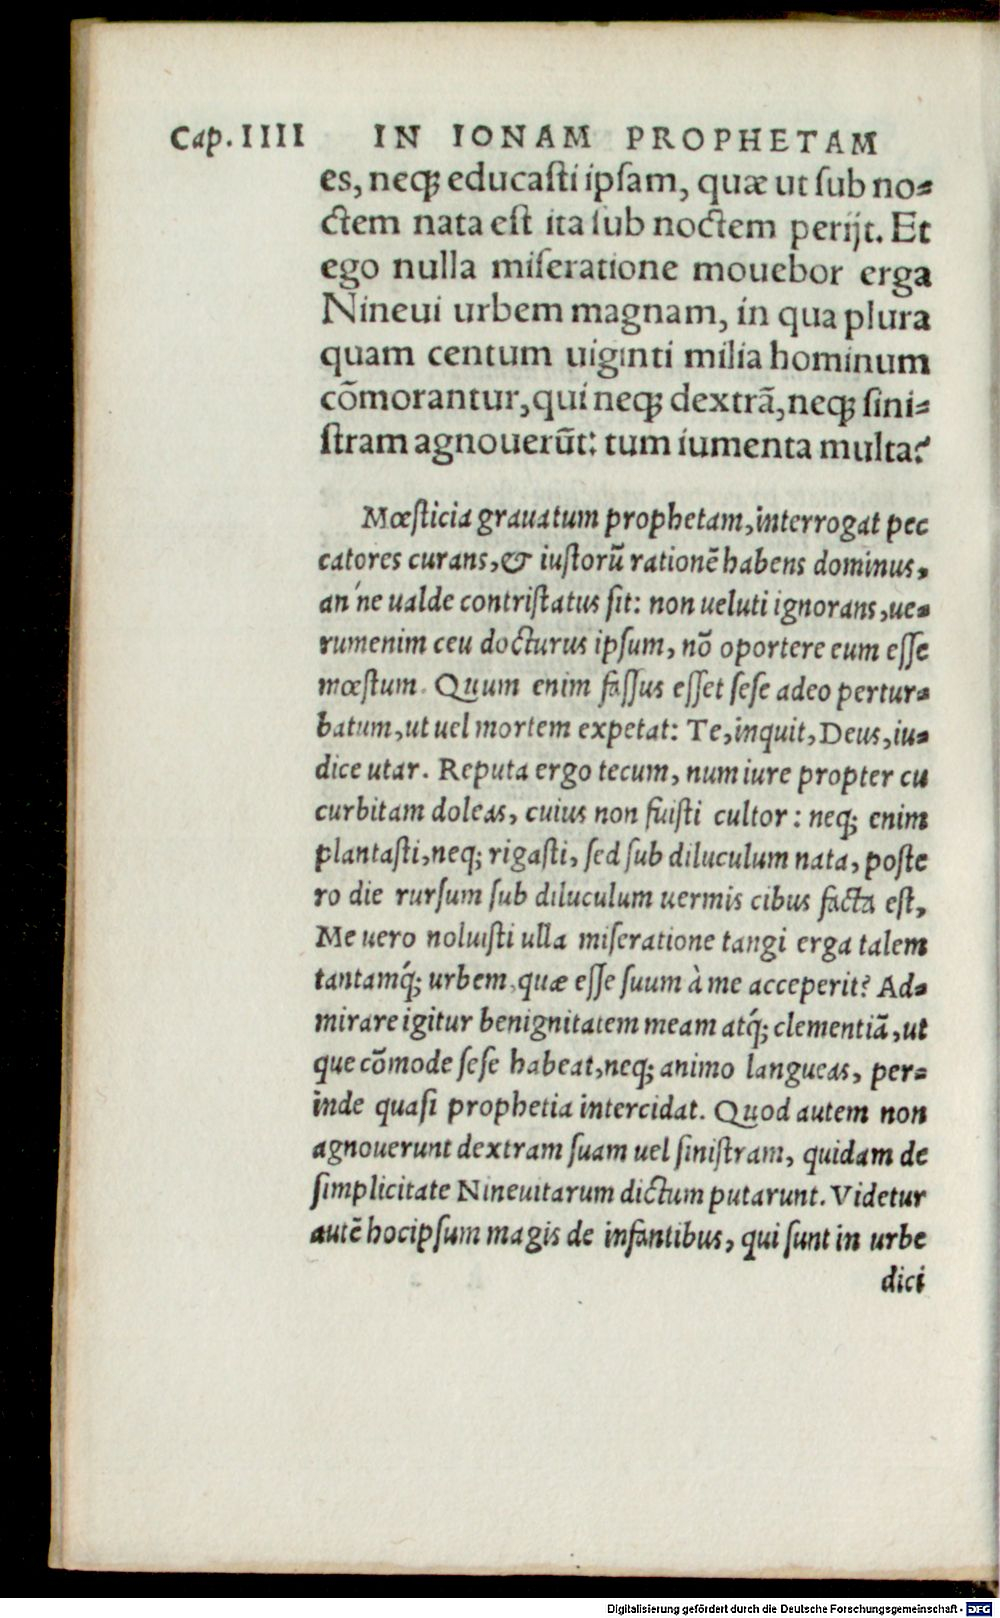 Cap. IIII IN IONAM PROPHETAM
es, neqꝫ educaſti ipſam, quæ ut ſub no⸗
ctem nata eſt ita ſub noctem perijt. Et
ego nulla miſeratione mouebor erga
Nineui urbem magnam, in qua plura
quam centum uiginti milia hominum
cõmorantur, qui neqꝫ dextrã, neqꝫ ſini⸗
ſtram agnouerũt: tum iumenta multa?
Mœſticia grauatum prophetam, interrogat pec
catores curans, & iuſtorũ rationẽ habens dominus,
an'ne ualde contriſtatus ſit: non ueluti ignorans, ue⸗
rumenim ceu docturus ipſum, nõ oportere eum eſſe
mœſtum. Quum enim faſſus eſſet ſeſe adeo pertur⸗
batum, ut uel mortem expetat: Te, inquit, Deus, iu⸗
dice utar. Reputa ergo tecum, num iure propter cu
curbitam doleas, cuius non fuiſti cultor: neqꝫ enim
plantaſti, neqꝫ rigaſti, ſed ſub diluculum nata, poſte
ro die rurſum ſub diluculum uermis cibus facta eſt,
Me uero noluiſti ulla miſeratione tangi erga talem
tantamq́ꝫ urbem, quæ eſſe ſuum à me acceperit? Ad⸗
mirare igitur benignitatem meam atq́ꝫ clementiã, ut
que cõmode ſeſe habeat, neqꝫ animo langueas, per⸗
inde quaſi prophetia intercidat. Quod autem non
agnouerunt dextram ſuam uel ſiniſtram, quidam de
ſimplicitate Nineuitarum dictum putarunt. Videtur
autẽ hocipſum magis de infantibus, qui ſunt in urbe
dici
Digitalisierung gefördert durch die Deutsche Forschungsgemeinschaft - DFG